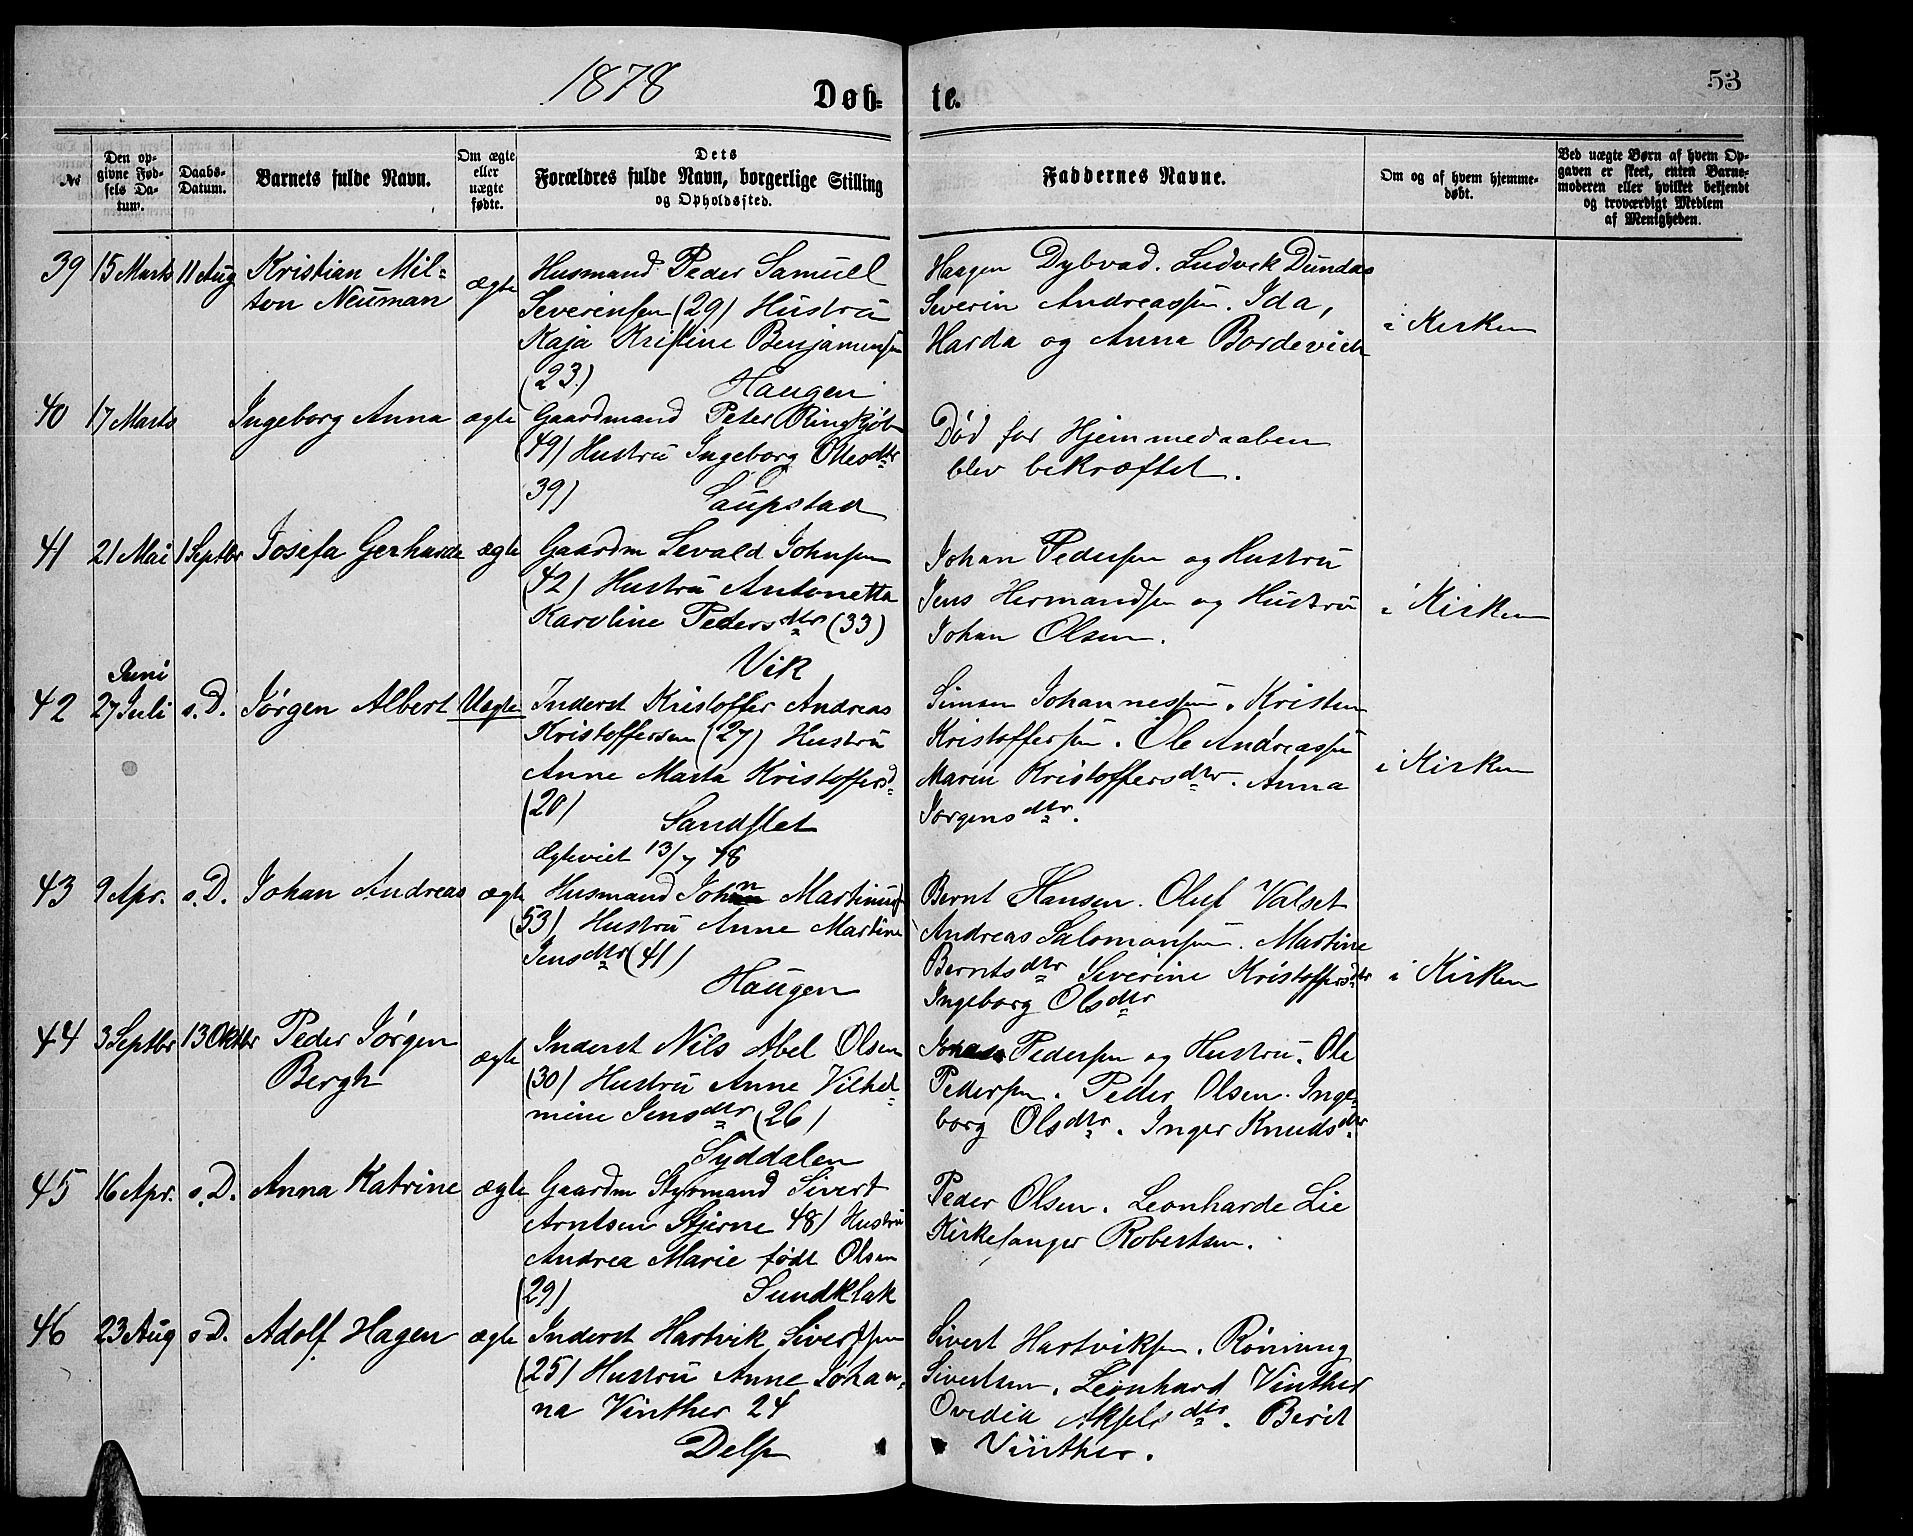 1878
Døb-
te.
53
№
Den op-
givne Fød-
sels Da-
tum.
Daabs-
Datum.
Barnets fulde Navn.
Om ægte
eller
uægte
fødte.
Dets
Forældres fulde Navn, borgerlige Stilling
og Opholdssted.
Faddernes Navne.
Om og af hvem hjemme-
døbt.
Ved uægte Børn af hvem Op-
gaven er skeet, enten Barne-
moderen eller hvilket bekjendt
og troværdigt Medlem
af Menigheden.
39 15 Marts 11 Aug Kristian Mil-
ton Neuman
ægte
Husmand Peder Samuel
Severinsen (29) Hustru
Kaja Kristine Benjaminsen
(23.) Haugen
Haagen Dybvad. Ludvik Dundas
Severin Andreassen. Ida,
Harda og Anna Bordevich
i Kirken
40 17 Marts Ingeborg Anna ægte
Gaardmand Peter Ringkjøb
(49) Hustru Ingeborg Olesdtr
39) Laupstad
Død før Hjemmedaaben
blev bekræftet.
41 21 Mai 1 Septbr Josefa Gerharda ægte
Gaardm Sevald Johnsen
(42) Hustru Antonetta
Karoline Pedersdtr (33)
Vik
Johan Pedersen og Hustru
Jens Hermandsen og Hustru
Johan Olsen.
i Kirken
Juni
42 27 Juli s. D. Jørgen Albert Uægte
Inderst Kristoffer Andreas
Kristoffersen (27) Hustru
Anne Marta Kristoffersd
(20) Sandslet
Ægteviet 13/7 78
Simon Johannessen. Kristen
Kristoffersen. Ole Andreassen
Maren Kristoffersdtr. Anna
Jørgensdtr.
i Kirken
43 9 Apr. s. D. Johan Andreas ægte
Husmand John Martinus
(53) Hustru Anne Martine
Jensdtr (41)
Haugen
Bernt Hansen. Oluf Valset
Andreas Salomonsen. Martine
Berntsdtr Severine Kristoffersdtr
Ingeborg Olsdtr
i Kirken
44 3 Septbr 13 Oktbr Peder Jørgen
Bergh
ægte
Inderst Nils Abel Olsen
(30) Hustru Anne Vilhel-
mine Jensdtr (26)
Syddalen
Johan Pedersen og Hustru. Ole
Pedersen. Peder Olsen. Inge-
borg Olsdtr. Inger Knudsdtr
45 16 Apr. s. D. Anna Katrine ægte
Gaardm Styrmand Sivert
Arntsen Stjerne 48) Hustru
Andrea Marie født Olsen
(29) Sundklak
Peder Olsen. Leonharde Lie
Kirkesanger Robertsen.
46 23 Aug s D. Adolf Hagen ægte
Inderst Hartvik Sivertsen
(25) Hustru Anne Johan-
na Vinther 24
Delp
Sivert Hartviksen. Rönning
Sivertsen. Leonhard Vinther
Ovedia Akselsdtr. Berit
Vinther.